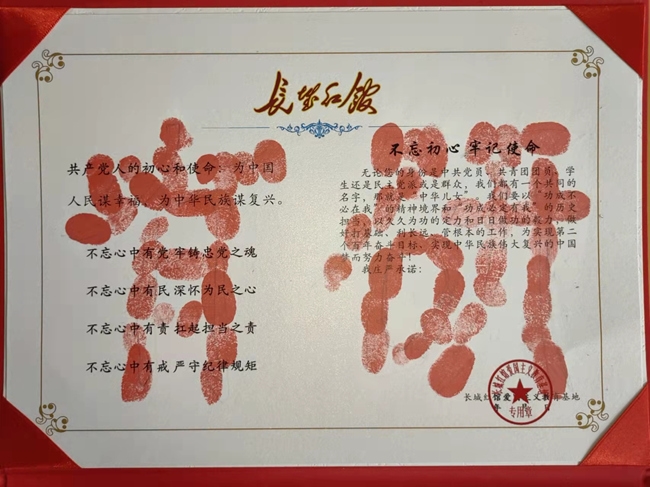 长城红馆
共产党人的初心和使命：为中国
人民谋幸福，为中华民族谋复兴。
不忘心中有党 牢铸忠党之魂
不忘心中有民 深怀为民之心
不忘心中有责 扛起担当之责
不忘心中有戒 严守纪律规矩
不忘初心 牢记使命
无论您的身份是中共党员、共青团团员、学
生还是民主党派或是群众，我们都有一个共同的
名字，那就是“中华儿女”。我们要以“功成不
必在我”的精神境界和“功成必定有我”的历史
担当，以久久为功的定力和日日做功的毅力，做
好打基础、利长远、管根本的工作，为实现第二
个百年奋斗目标、实现中华民族伟大复兴的中国
梦而努力奋斗！
我庄严承诺：
长城红馆爱国主义教育基地
年 月 日
长城红馆爱国主义教育基地
专用章